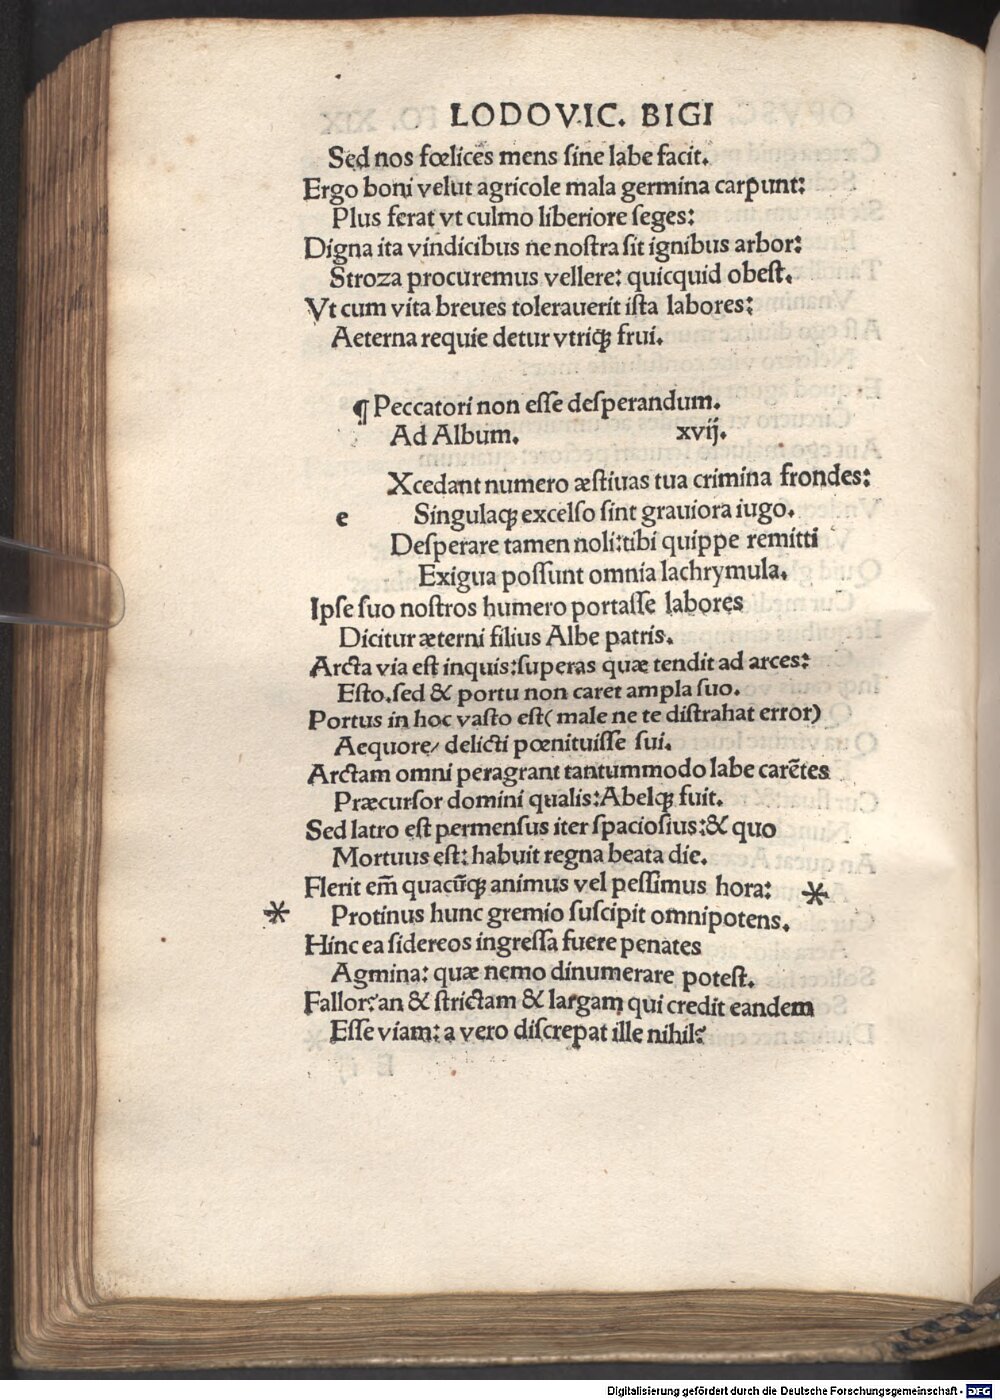 LODOVIC. BIGI
Sed nos fœlices mens ſine labe facit.
Ergo boni velut agricole mala germina carpunt:
Plus ferat vt culmo liberiore ſeges:
Digna ita vindicibus ne noſtra ſit ignibus arbor:
Stroza procuremus vellere: quicquid obeſt.
Vt cum vita breues tolerauerit iſta labores:
Aeterna requie detur vtriqꝫ frui.
¶ Peccatori non eſſe deſperandum.
Ad Album. xvij.
Xcedant numero æſtiuas tua crimina frondes:
e Singulaqꝫ excelſo ſint grauiora iugo.
Deſperare tamen noli:tibi quippe remitti
Exigua poſſunt omnia lachrymula.
Ipſe ſuo noſtros humero portaſſe labores
Dicitur æterni filius Albe patris.
Arcta via eſt inquis:ſuperas quæ tendit ad arces:
Eſto.ſed & portu non caret ampla ſuo.
Portus in hoc vaſto eſt( male ne te diſtrahat error)
Aequore/ delicti pœnituiſſe ſui.
Arctam omni peragrant tantummodo labe carētes
Præcurſor domini qualis:Abelqꝫ fuit.
Sed latro eſt permenſus iter ſpacioſius:& quo
Mortuus eſt: habuit regna beata die.
Flerit em̄ quacūqꝫ animus vel peſſimus hora: *
* Protinus hunc gremio ſuſcipit omnipotens.
Hinc ea ſidereos ingreſſa fuere penates
Agmina: quæ nemo dinumerare poteſt.
Fallor?an & ſtrictam & largam qui credit eandem
Eſſe viam: a vero diſcrepat ille nihil?
Digitalisierung gefördert durch die Deutsche Forschungsgemeinschaft - DFG